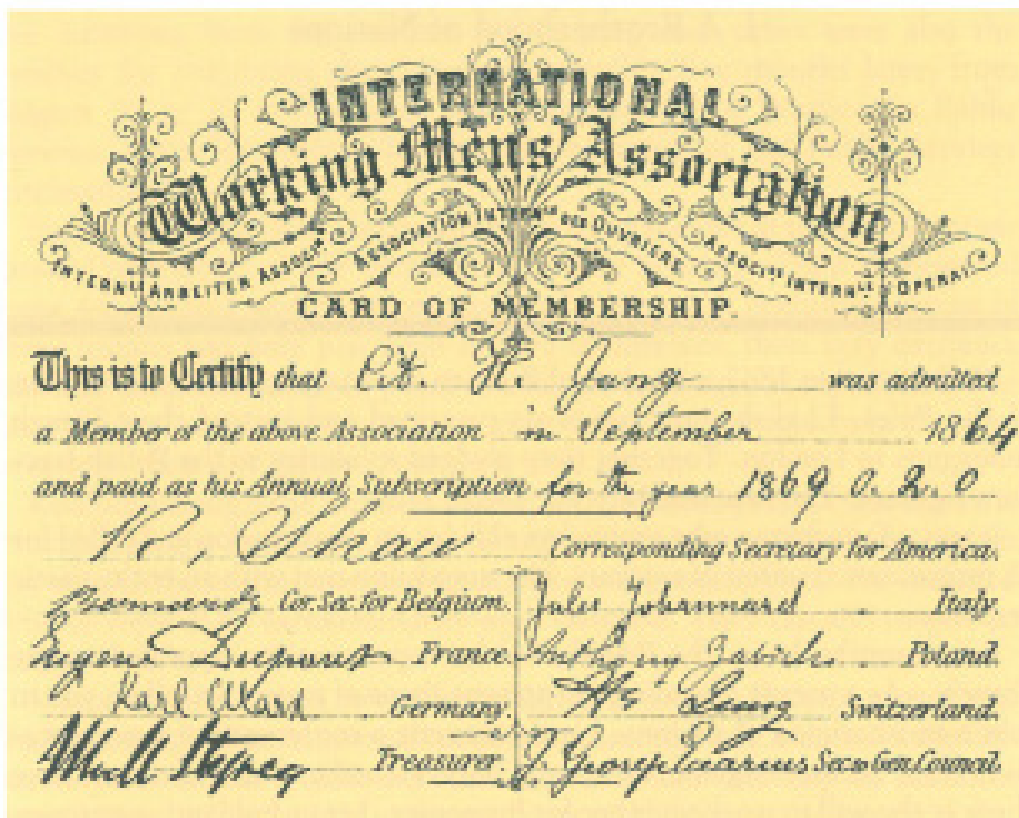 INTERNATIONAL
Working Men's Association
INTERNALE ARBEITER ASSOCIN ASSOCIATION INTERNALE DES OUVRIERS ASSOCIAE INTERNALE D'OPERAI
CARD OF MEMBERSHIP.
This is to Certify that Cit. H. Jung was admitted
a Member of the above Association in September 1864
and paid as his Annual Subscription for the year 1869 0. 2. 0
R. Shaw Corresponding Secretary for America.
Cor. Sec. for Belgium. Jules Johannard Italy.
Eugene Dupont France. Anthony Zabicki Poland.
Karl Marx Germany. H. Jung Switzerland.
Treasurer. J. George Eccarius Sec to Gen Council.